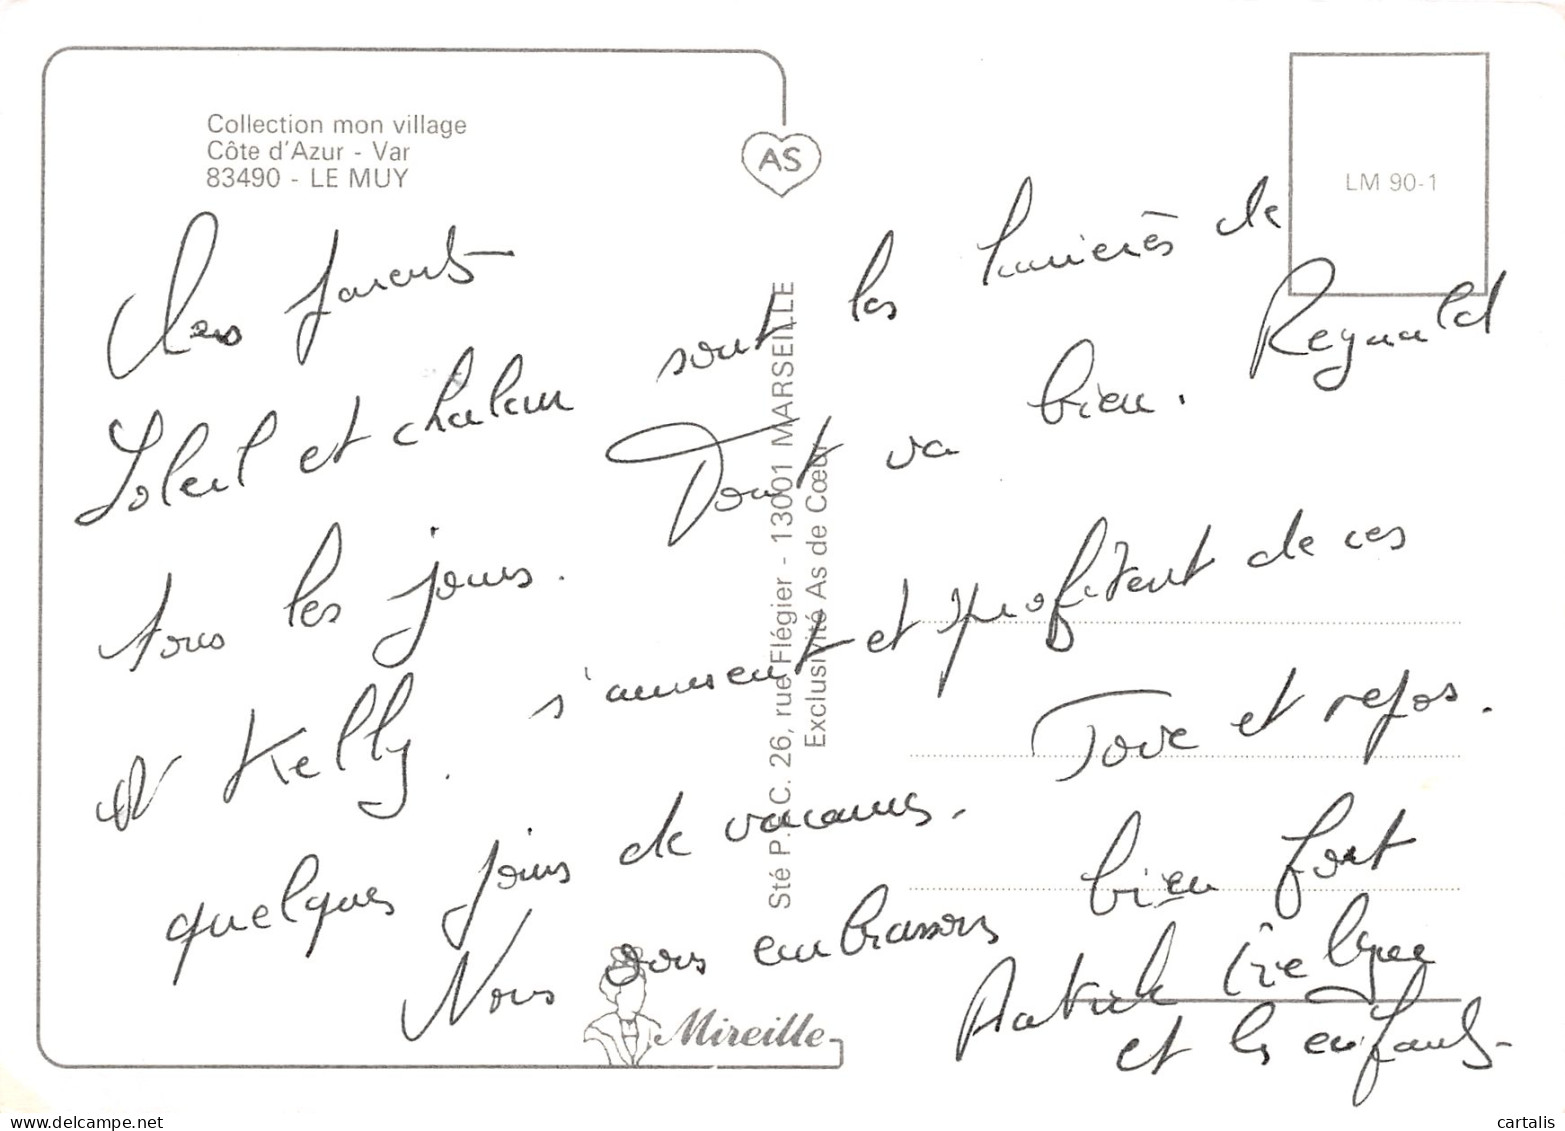 Collection mon village
Côte d'Azur - Var
83490 - LE MUY
AS
LM 90-1
Chers parents
Soleil et chaleur sont les lumières de
tous les jours. Tout va bien. Reynald
et Kelly s'amusent et profitent de ces
quelques jours de vacances. Joie et repos.
Nous vous embrassons bien fort
Patrick
et les enfants
Sté P.E.C. 26, rue Flégier - 13001 MARSEILLE
Exclusivité As de Cœur
Mireille
cartalis.com